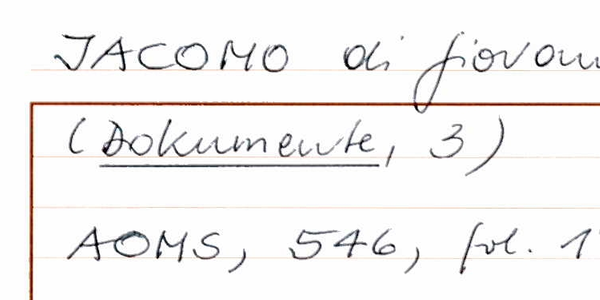 JACOMO di giovan
(Dokumente, 3)
AOMS, 546, fol. 1